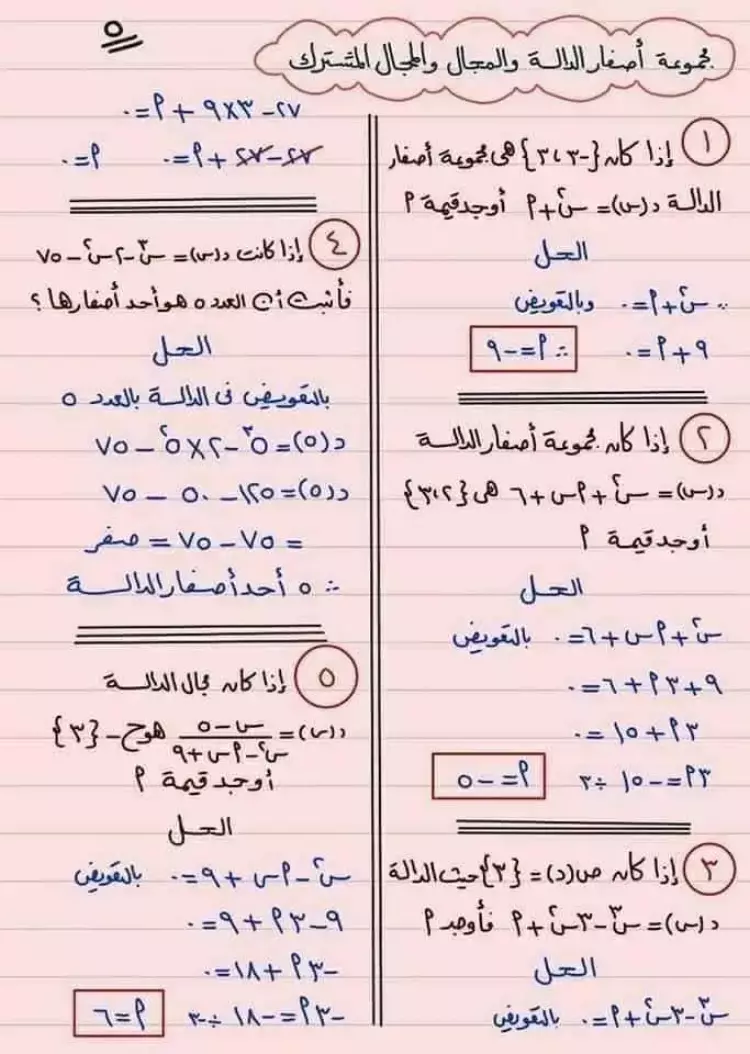 ٥
مجموعة أصفار الدالة والمجال والمجال المشترك
١ إذا كان {-٣،٣} هى مجموعة أصفار
الدالة د(س)= س٢+٩ أوجد قيمة ٩
الحل
∵ س٢+٩=٠ وبالتعويض
٩+٩=٠ ∴ ٩=-٩
٢ إذا كان مجموعة أصفار الدالة
د(س)= س٢+٩س+٦ هى {٣،٢}
أوجد قيمة ٩
الحل
س٢+٩س+٦=٠ بالتعويض
٩+٣٩+٦=٠
٣٩+١٥=٠
٣٩=-١٥ ÷٣ ٩=-٥
٣ إذا كان ص(د)= {٣} حيث الدالة
د(س)= س٣-٣س٢+٩ فأوجد ٩
الحل
س٣-٣س٢+٩=٠ بالتعويض
٢٧-٣×٩+٩=٠
٢٧-٢٧+٩=٠ ٩=٠
٤ إذا كانت د(س)= س٣-٢س٢-٧٥
فأثبت أن العدد ٥ هو أحد أصفارها ؟
الحل
بالتعويض فى الدالة بالعدد ٥
د(٥)= ٥٣-٢×٥٢-٧٥
د(٥)=١٢٥-٥٠-٧٥
=٧٥-٧٥= صفر
∴ ٥ أحد أصفار الدالة
٥ إذا كان مجال الدالة
د(س)= س-٥ / س٢-٩س+٩ هو ح-{٣}
أوجد قيمة ٩
الحل
س٢-٩س+٩=٠ بالتعويض
٩-٣٩+٩=٠
-٣٩+١٨=٠
-٣٩=-١٨ ÷-٣ ٩=٦